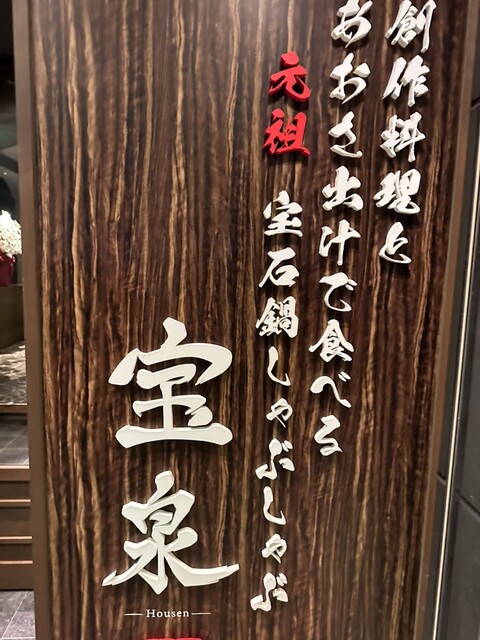 創作料理と
あおさ出汁で食べる
元祖 宝石鍋しゃぶしゃぶ
宝泉
Housen